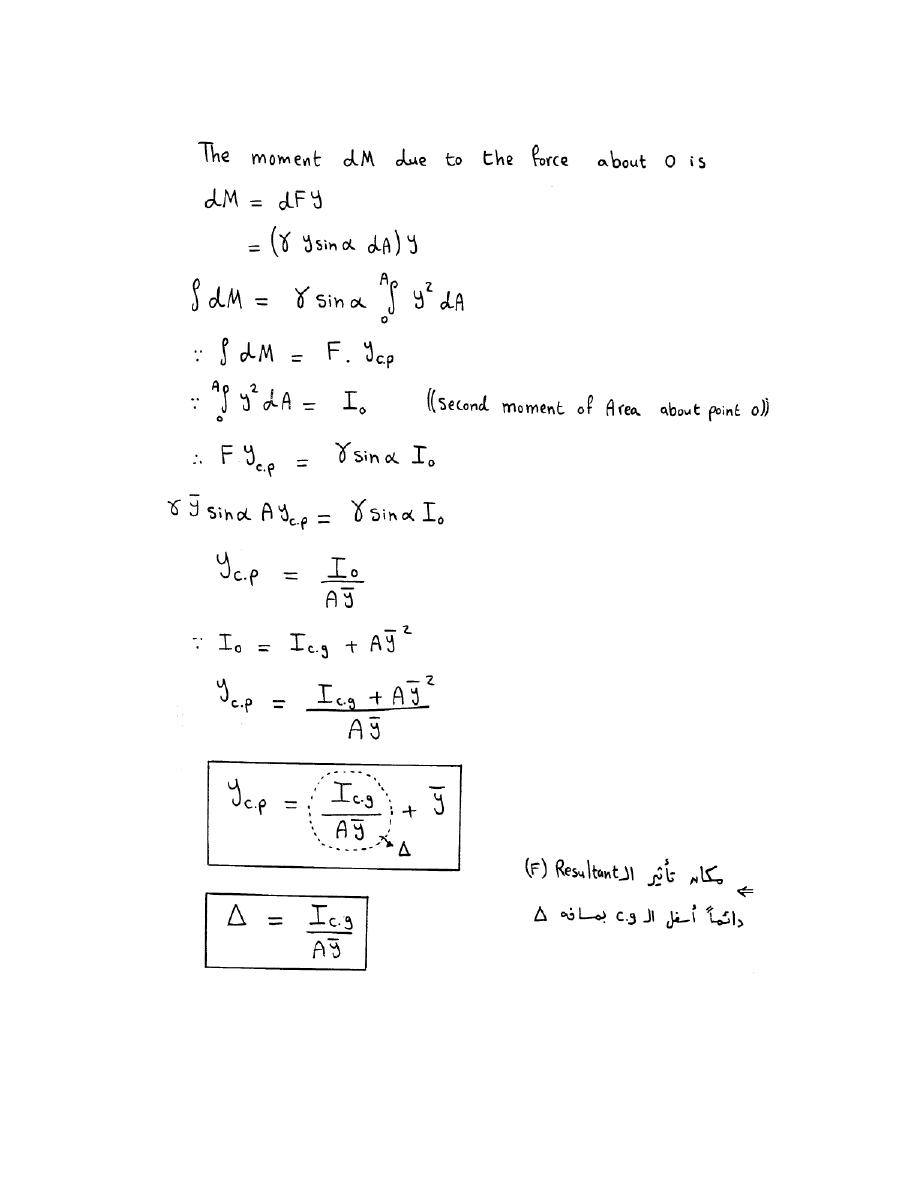 The moment dM due to the force about O is
dM = dF y
= (γ y sin α dA) y
∫ dM = γ sin α ₀∫ᴬᵖ y² dA
∵ ∫ dM = F. y_c.p
∵ ₀∫ᴬᵖ y² dA = I₀ ((second moment of Area about point o))
∴ F y_c.p = γ sin α I₀
γ ȳ sin α A y_c.p = γ sin α I₀
y_c.p = I₀ / Aȳ
∵ I₀ = I_c.g + Aȳ²
y_c.p = (I_c.g + Aȳ²) / Aȳ
y_c.p = I_c.g / Aȳ + ȳ
Δ
⇐ مكان تأثير الـ Resultant (F)
دائماً أسفل الـ c.g بمسافه Δ
Δ = I_c.g / Aȳ